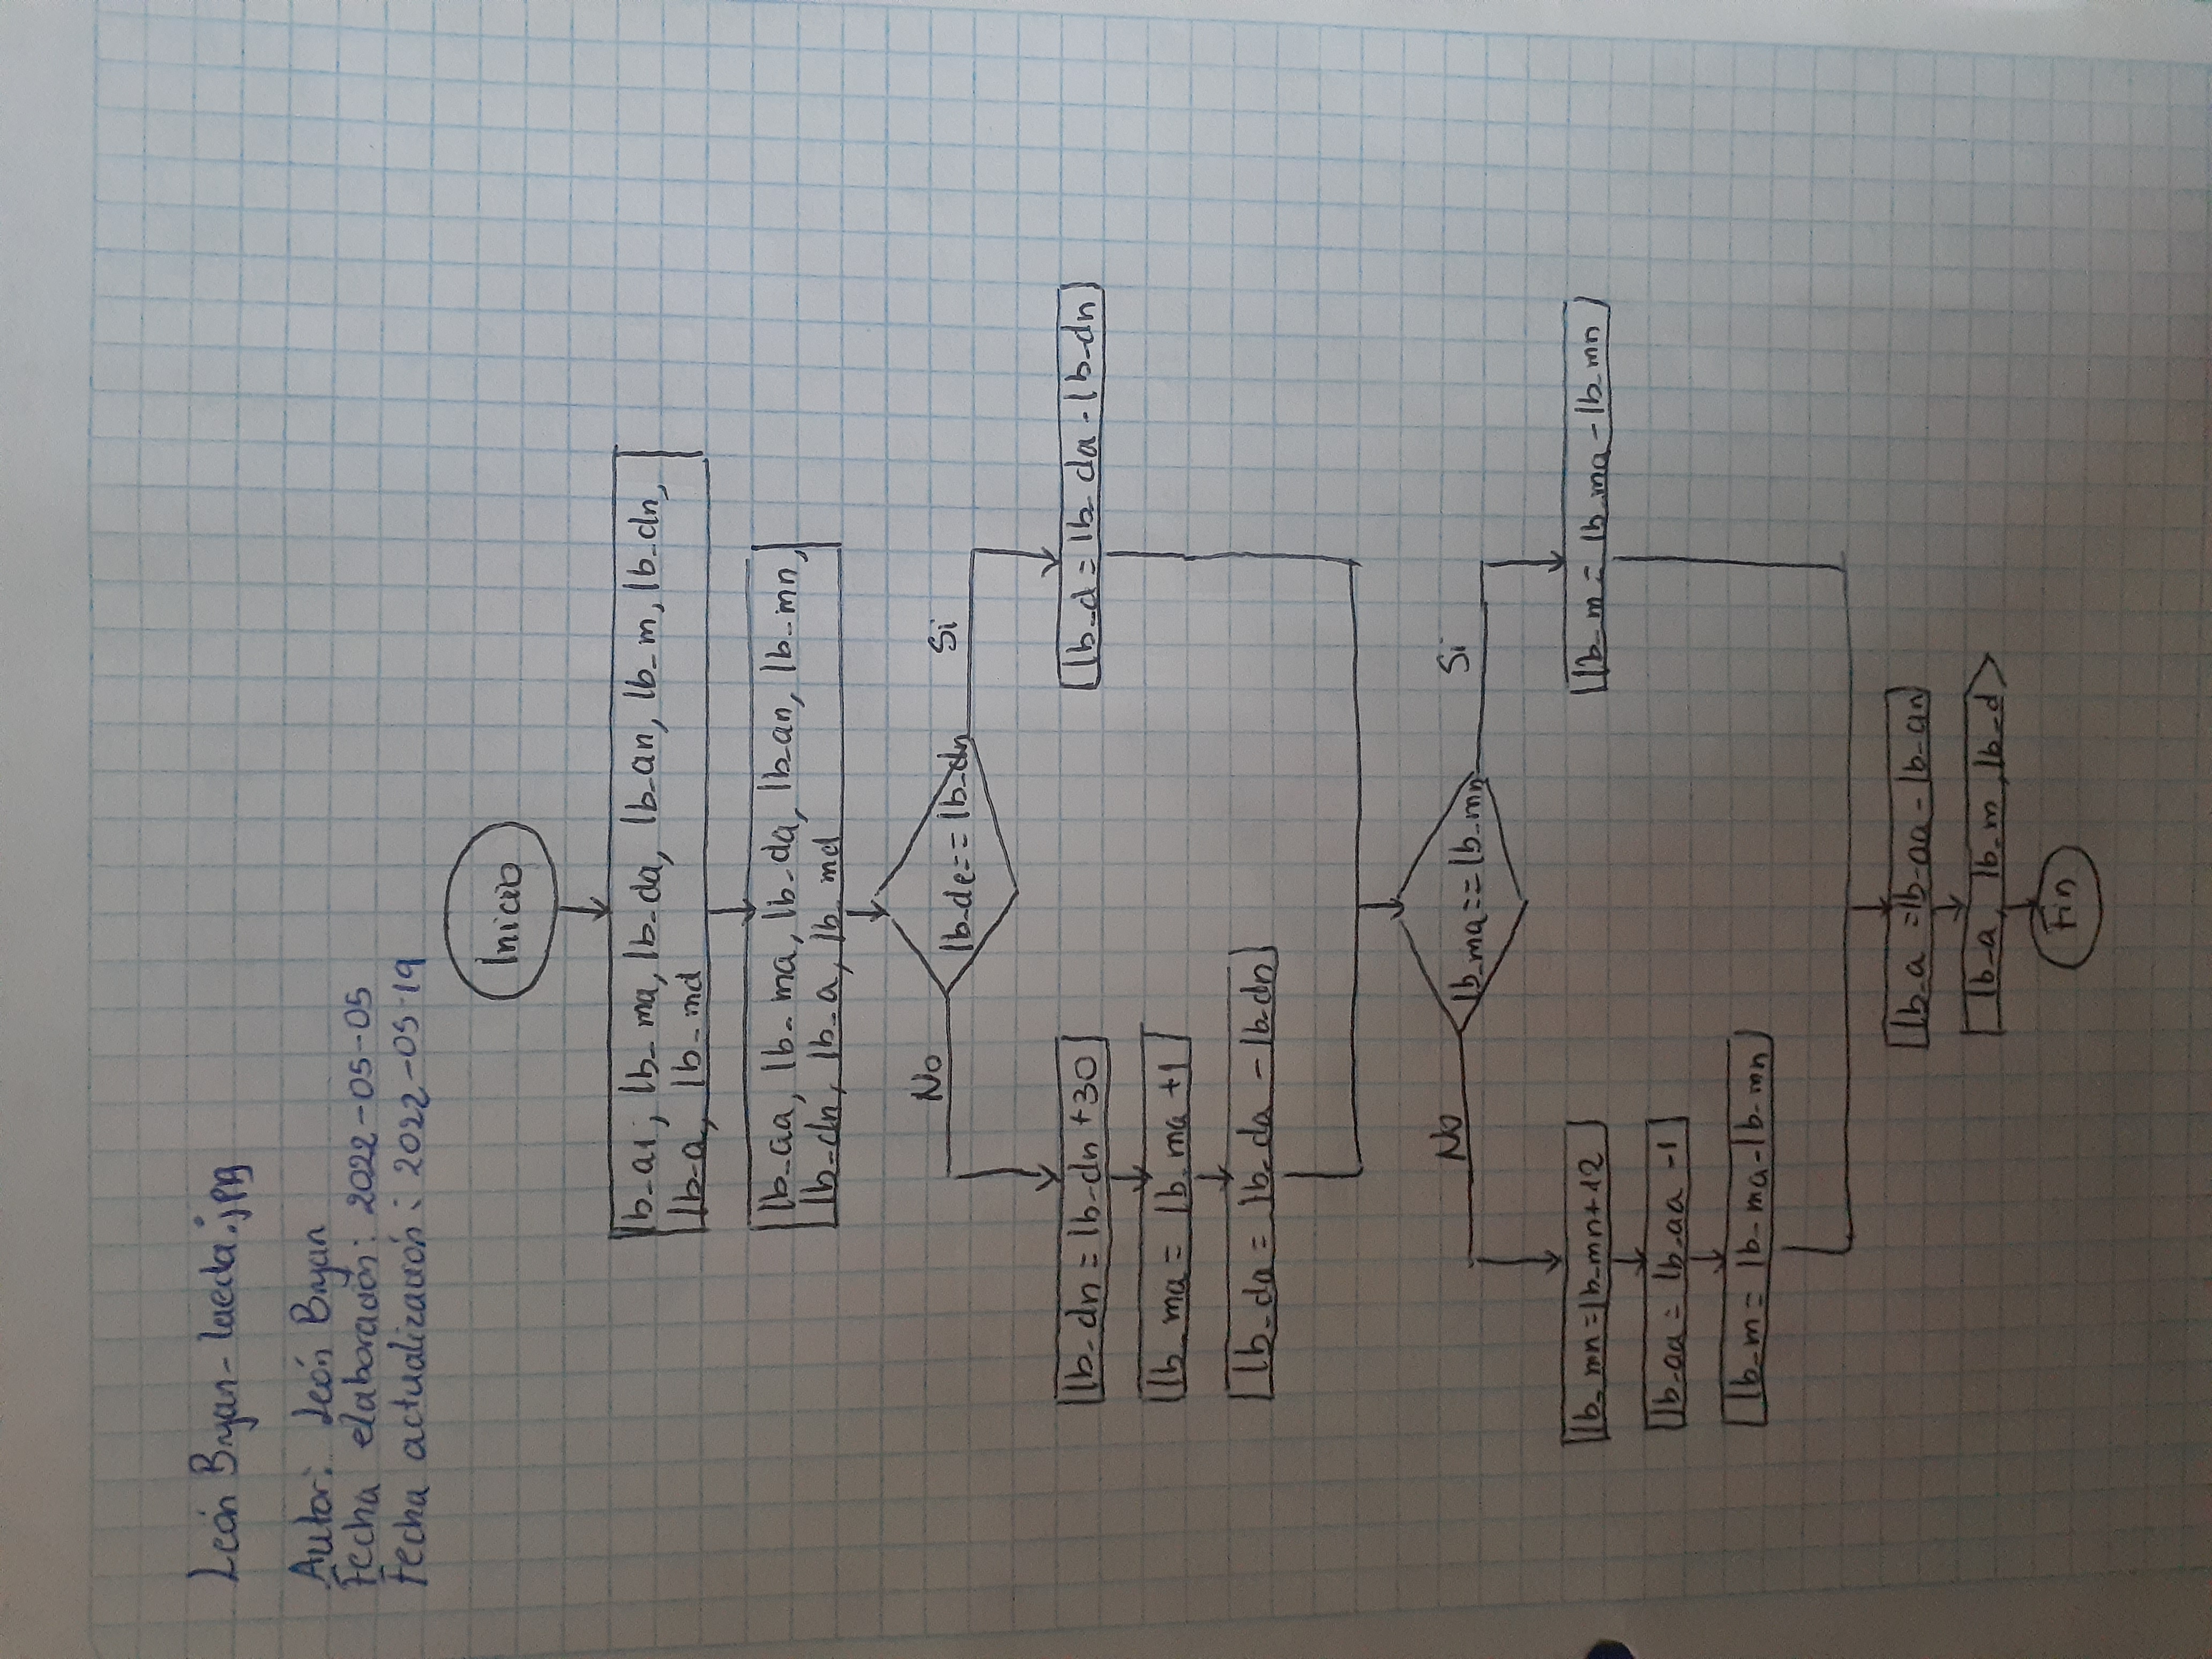 León Bryan-laeda.jpg
Autor: León Bryan
Fecha elaboración: 2022-05-05
Fecha actualización: 2022-05-19
Inicio
lb_a1, lb_ma, lb_da, lb_an, lb_m, lb_dn,
lb_a, lb_md
lb_aa, lb_ma, lb_da, lb_an, lb_mn,
lb_dn, lb_a, lb_md
No
lb_de==lb_dn
Si
lb_dn = lb_dn +30
lb_d = lb_da - lb_dn
lb_ma = lb_ma +1
lb_da = lb_da - lb_dn
No
lb_ma==lb_mn
Si
lb_mn=lb_mn+12
lb_m = lb_ma-lb_mn
lb_aa = lb_aa -1
lb_m = lb_ma-lb_mn
lb_a =lb_aa-lb_an
lb_a, lb_m, lb_d
Fin